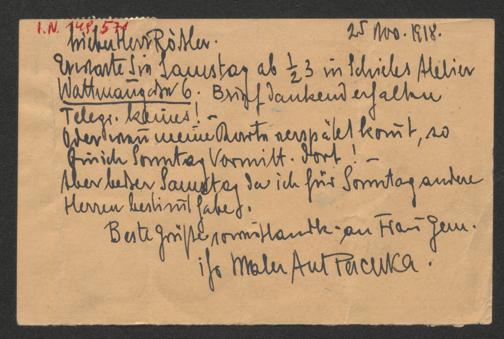 I.N. 149.571
25 Nov. 1918.
Lieber Herr Rößler.
Erwarte Sie Samstag ab ½ 3 in Schieles Atelier
Wattmanngasse 6. Brief dankend erhalten
Telegr. keines! –
Oder wenn meine Karte verspätet kommt, so
Sonntag Vormitt. dort! –
Aber lieber Samstag da ich für Sonntag andere
Herren bestimmt habe.
Beste Grüße an Frau Gem.
Ihr Maler Ant Peschka.